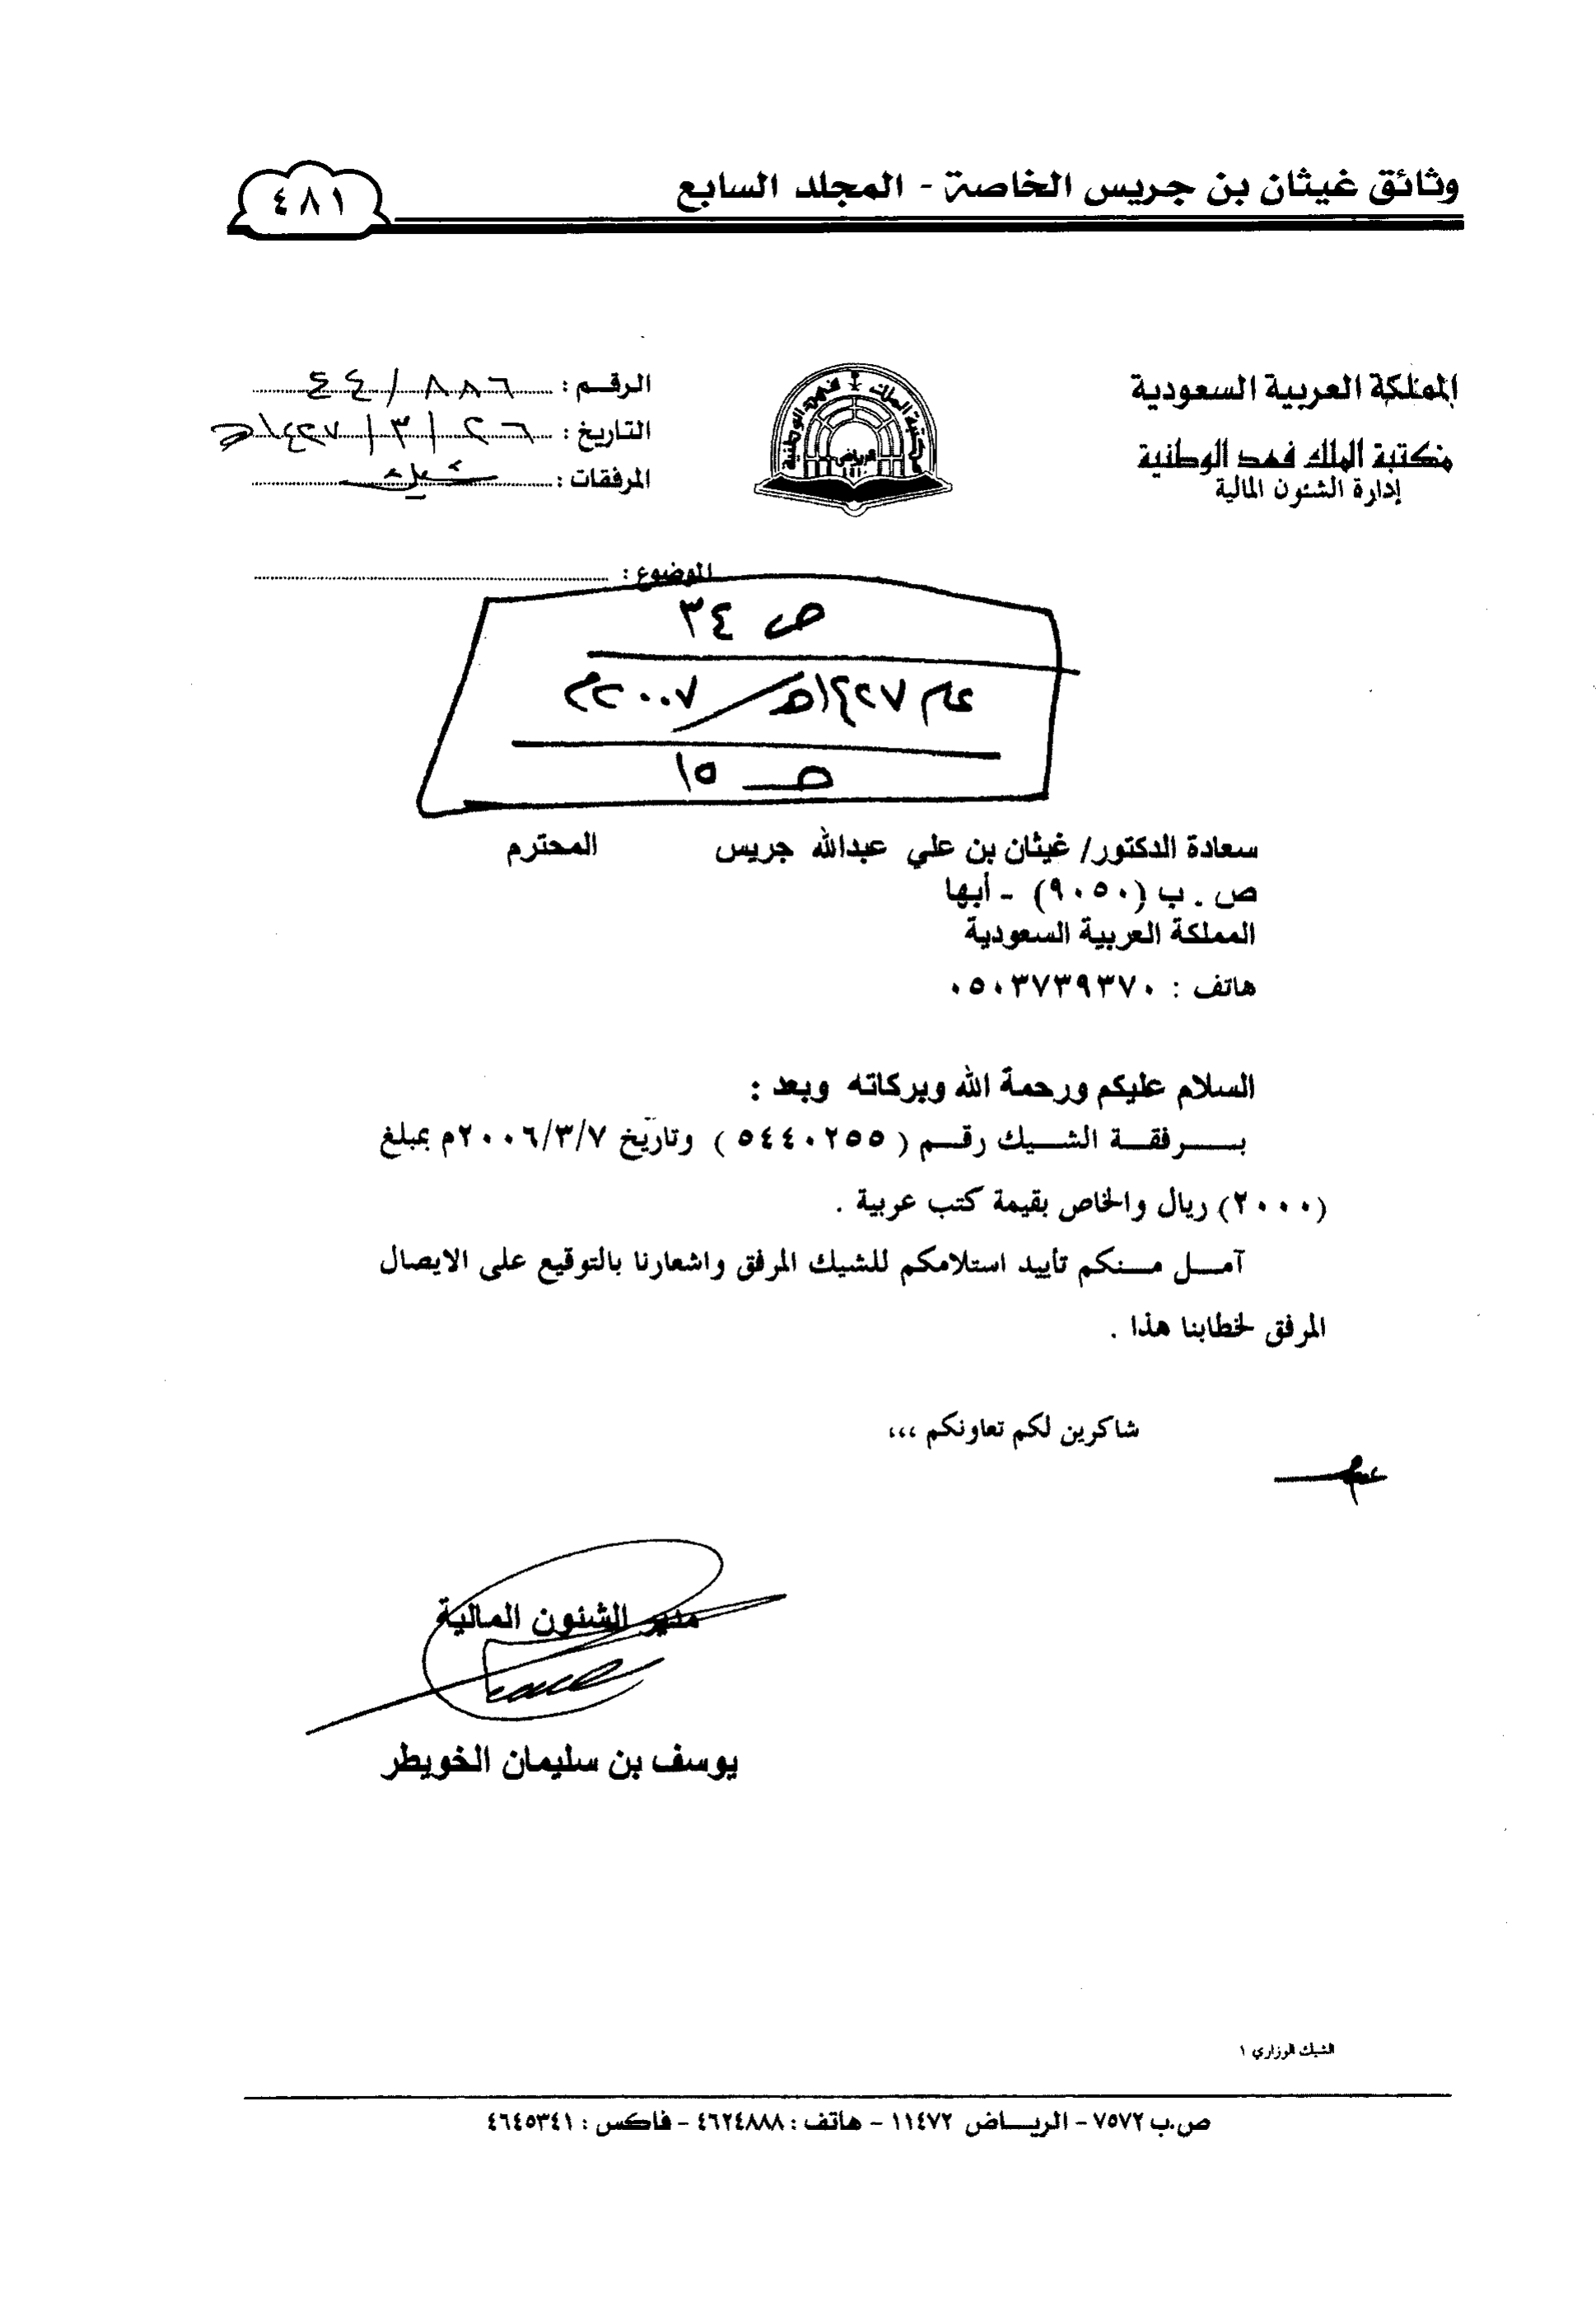 وثائق غيثان بن جريس الخاصة - المجلد السابع
٤٨١
المملكة العربية السعودية
مكتبة الملك فهد الوطنية
إدارة الشئون المالية
مكتبة الملك فهد الوطنية
الرياض
الرقم : ٤٤/٨٨٦
التاريخ : ٢٦/٣/١٤٢٧هـ
المرفقات : شيك
الموضوع :
ص ٣٤
عام ١٤٢٧هـ/٢٠٠٧م
ص ١٥
سعادة الدكتور/ غيثان بن علي عبدالله جريس المحترم
ص . ب (٩٠٥٠) - أبها
المملكة العربية السعودية
هاتف : ٠٥٠٣٧٣٩٣٧٠
السلام عليكم ورحمة الله وبركاته وبعد :
برفقة الشيك رقم ( ٥٤٤٠٢٥٥ ) وتاريخ ٢٠٠٦/٣/٧م بمبلغ
(٢٠٠٠) ريال والخاص بقيمة كتب عربية .
آمل منكم تأييد استلامكم للشيك المرفق واشعارنا بالتوقيع على الايصال
المرفق لخطابنا هذا .
شاكرين لكم تعاونكم ،،،
مدير الشئون المالية
يوسف بن سليمان الخويطر
الشيك الوزاري ١
ص.ب ٧٥٧٢ - الرياض ١١٤٧٢ - هاتف : ٤٦٢٤٨٨٨ - فاكس : ٤٦٤٥٣٤١